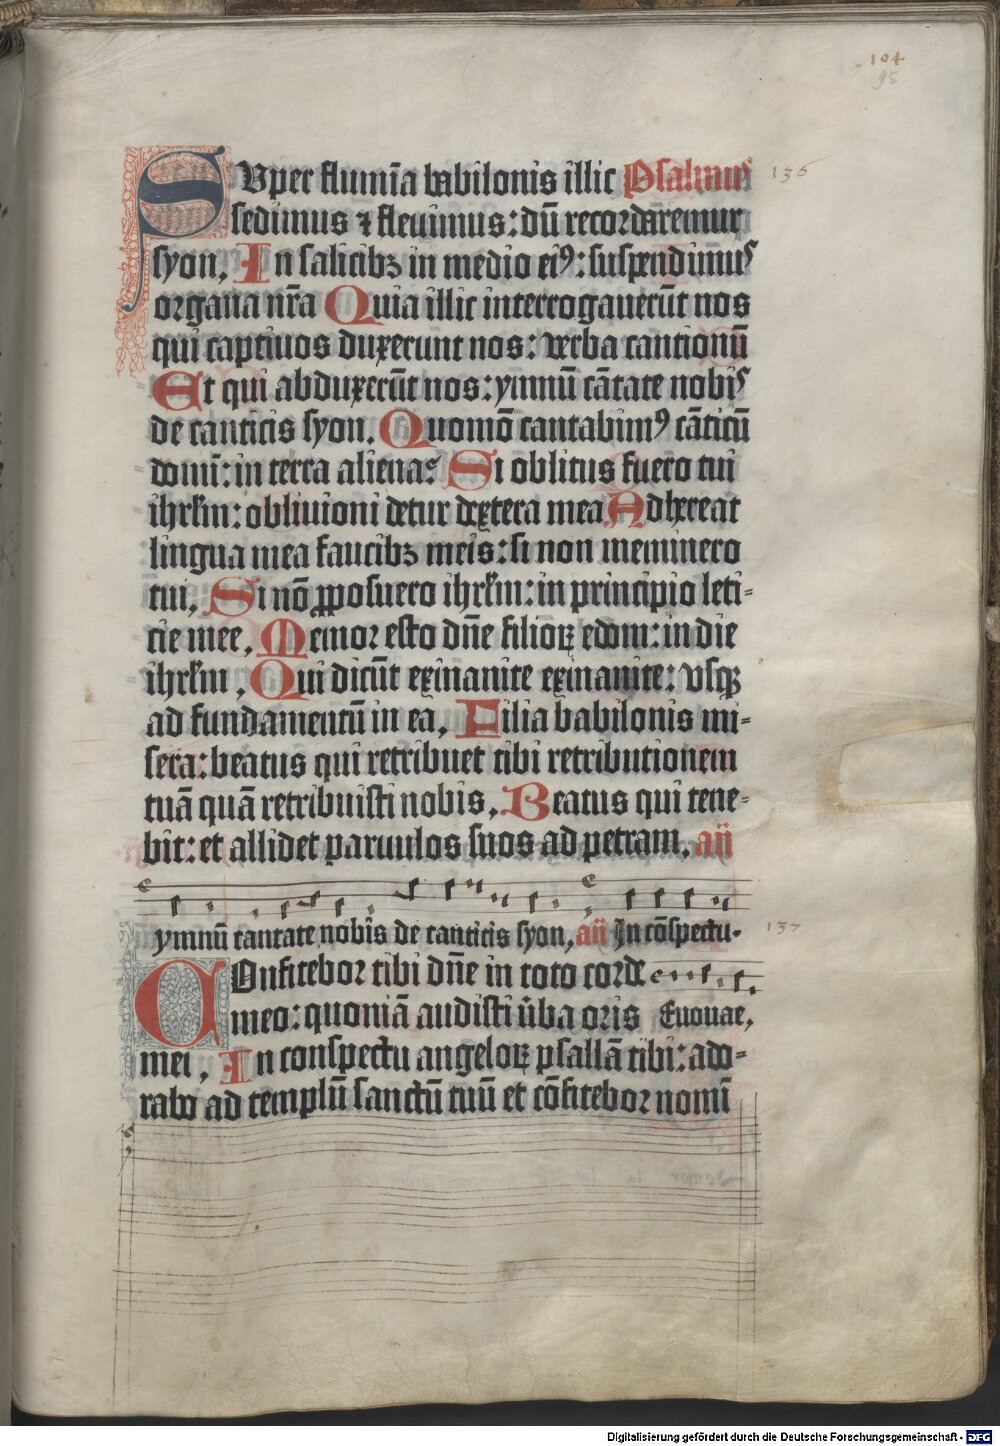 104
95
SVper flumīa babilonis illic Psalmus 136
sedimus ⁊ fleuimus: dū recordaremur
syon, In salicibꝫ in medio eiꝰ: suspendimus
organa nr̄a Quia illic interrogauerūt nos
qui captiuos duxerunt nos: verba cantionū
Et qui abduxerūt nos: ymnū cātate nobis
de canticis syon. Quomō cantabimꝰ cāticū
domī: in terra aliena? Si oblitus fuero tui
ihrlm: obliuioni detur dextera mea Adhereat
lingua mea faucibꝫ meis: si non meminero
tui, Si nō ꝓposuero ihrlm: in principio leti-
cie mee, Memor esto dn̄e filioꝝ edom: in die
ihrlm, Qui dicūt exinanite exinanite: vsqꝫ
ad fundamentū in ea, Filia babilonis mi-
sera: beatus qui retribuet tibi retributionem
tuā quā retribuisti nobis, Beatus qui tene-
bit: et allidet paruulos suos ad petram. añ
ymnū cantate nobis de canticis syon, añ In cōspectu. 137
COnfitebor tibi dn̄e in toto corde
meo: quoniā audisti v̄ba oris Euouae,
mei, In conspectu angeloꝝ psallā tibi: ado-
rabo ad templū sanctū tuū et cōfitebor nomī
Digitalisierung gefördert durch die Deutsche Forschungsgemeinschaft - DFG